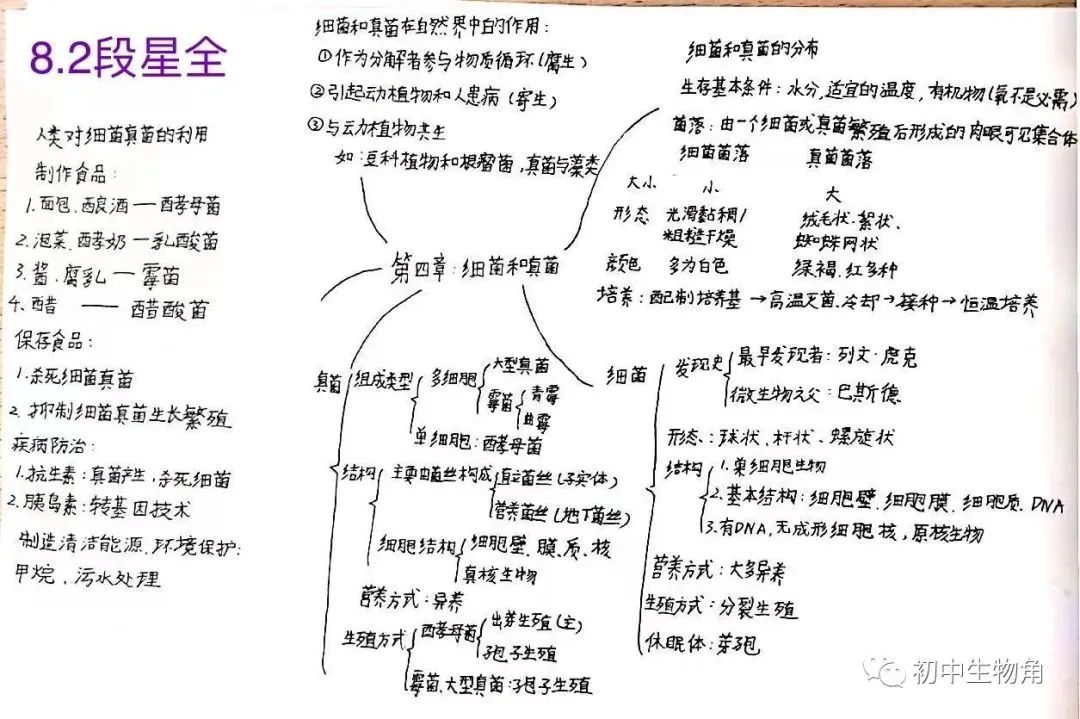 8.2段星全
人类对细菌真菌的利用
制作食品:
1.面包、酿酒—酵母菌
2.泡菜、酵奶—乳酸菌
3.酱、腐乳—霉菌
4.醋 —— 醋酸菌
保存食品:
1.杀死细菌真菌
2.抑制细菌真菌生长繁殖
疾病防治:
1.抗生素:真菌产生,杀死细菌
2.胰岛素:转基因技术
制造清洁能源、环境保护:
甲烷、污水处理
细菌和真菌在自然界中的作用:
①作为分解者参与物质循环(腐生)
②引起动植物和人患病(寄生)
③与动植物共生
如:豆科植物和根瘤菌,真菌与藻类
细菌和真菌的分布
生存基本条件:水分,适宜的温度,有机物(氧不是必需)
菌落:由一个细菌或真菌繁殖后形成的肉眼可见集合体
细菌菌落 真菌菌落
大小 小 大
形态 光滑黏稠/ 绒毛状、絮状、
粗糙干燥 蜘蛛网状
颜色 多为白色 绿褐、红多种
培养:配制培养基→高温灭菌、冷却→接种→恒温培养
第四章:细菌和真菌
真菌
组成类型
多细胞
大型真菌
霉菌
青霉
曲霉
单细胞:酵母菌
结构
主要由菌丝构成
直立菌丝(子实体)
营养菌丝(地下菌丝)
细胞结构
细胞壁、膜、质、核
真核生物
营养方式:异养
生殖方式
酵母菌
出芽生殖(主)
孢子生殖
霉菌、大型真菌:孢子生殖
细菌
发现史
最早发现者:列文·虎克
微生物之父:巴斯德
形态:球状、杆状、螺旋状
结构
1.单细胞生物
2.基本结构:细胞壁、细胞膜、细胞质、DNA
3.有DNA,无成形细胞核,原核生物
营养方式:大多异养
生殖方式:分裂生殖
休眠体:芽孢
初中生物角